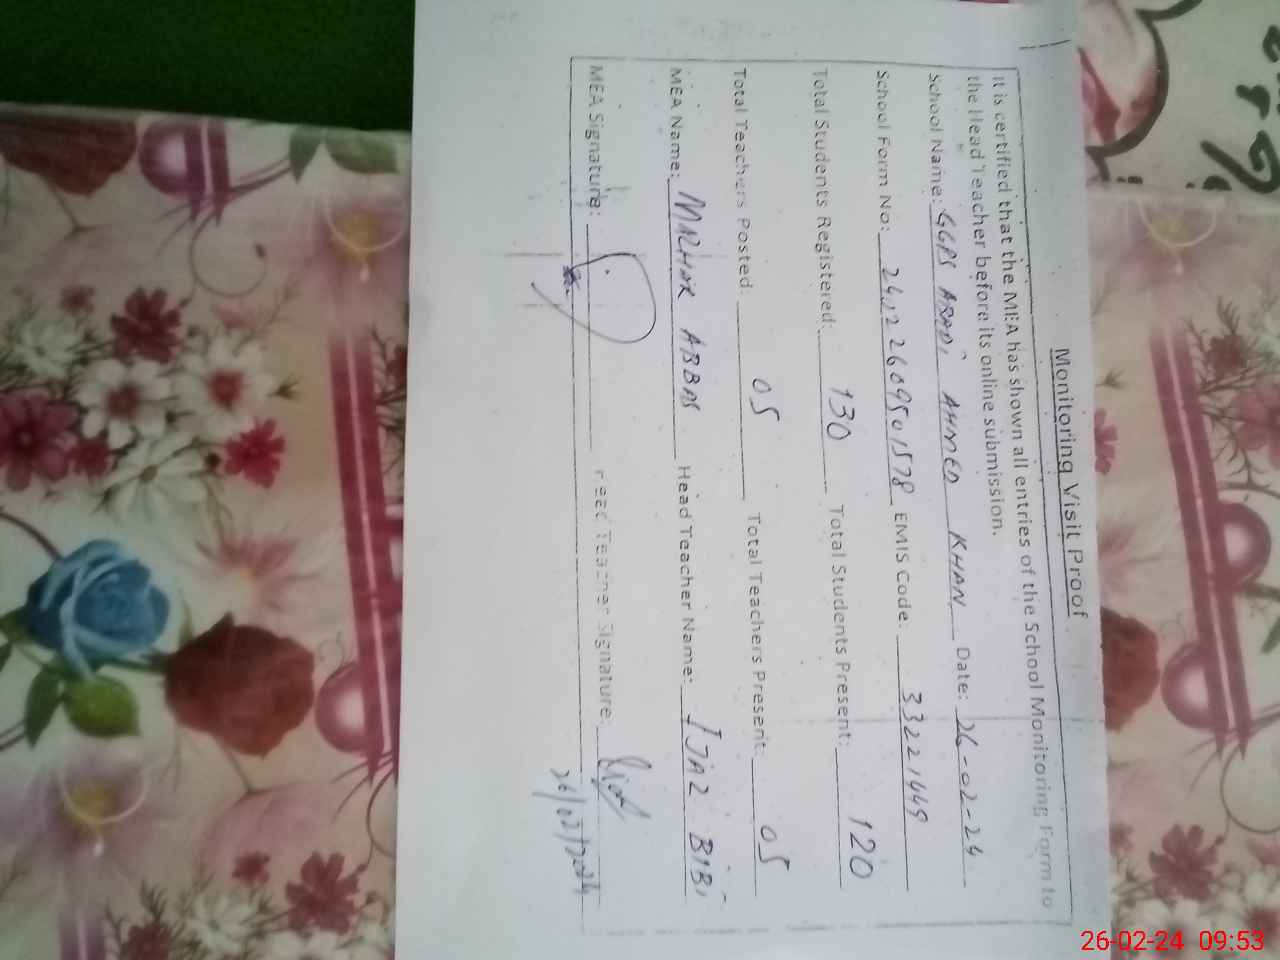 Monitoring Visit Proof
It is certified that the MEA has shown all entries of the School Monitoring Form to
the Head Teacher before its online submission.
School Name: GGPS ARADI AHMED KHAN Date: 26-02-24
School Form No: EMIS Code: 33221449
Total Students Registered: 130 Total Students Present: 120
Total Teachers Posted: 05 Total Teachers Present: 05
MEA Name: MAZHAR ABBAS Head Teacher Name: IJAZ BIBI
MEA Signature: Head Teacher Signature:
26/02/2024
26-02-24 09:53